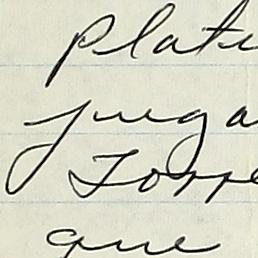 plati
juga
Torre
que